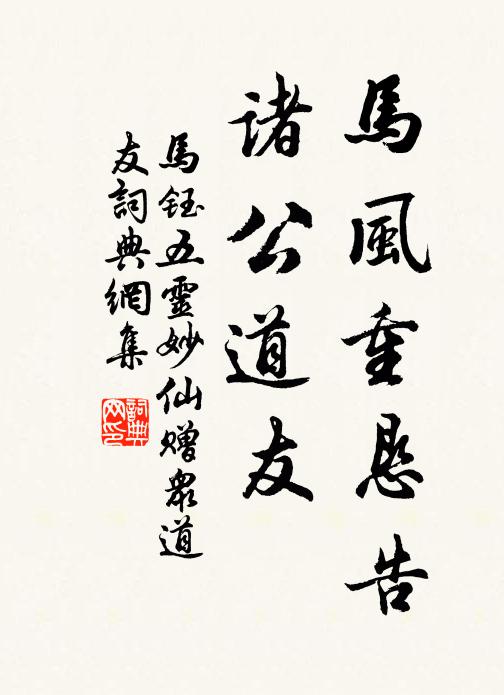 馬風重恳告
諸公道友
馬鈺五靈妙仙贈眾道
友詞典網集
詞典
网印